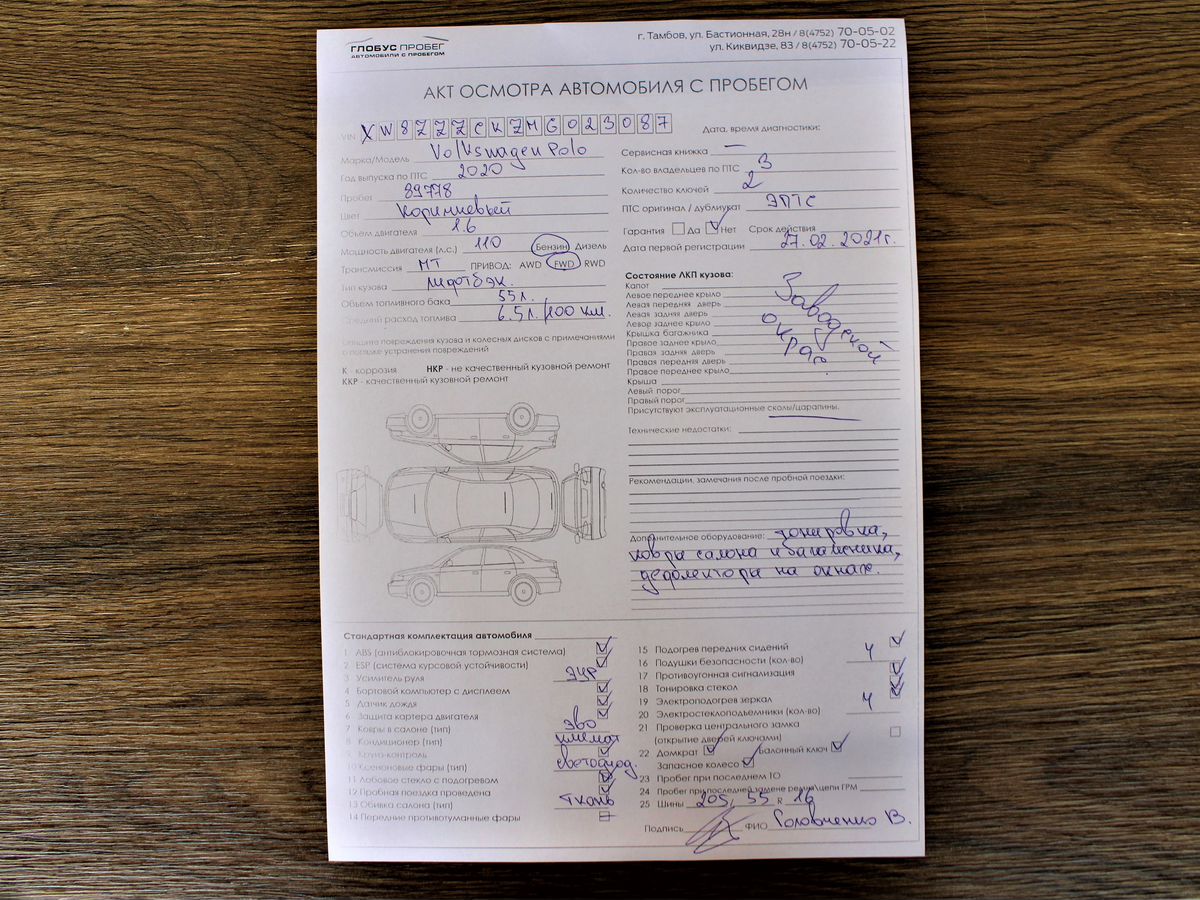 ГЛОБУС ПРОБЕГ
АВТОМОБИЛИ С ПРОБЕГОМ
г. Тамбов, ул. Бастионная, 28н / 8(4752) 70-05-02
ул. Киквидзе, 83 / 8(4752) 70-05-22
АКТ ОСМОТРА АВТОМОБИЛЯ С ПРОБЕГОМ
VIN XW8ZZZCKZMG023087
Марка/Модель Volkswagen Polo
Год выпуска по ПТС 2020
Пробег 89778
Цвет Коричневый
Объем двигателя 1.6
Мощность двигателя (л.с.) 110 Бензин Дизель
Трансмиссия МТ ПРИВОД: AWD FWD RWD
Тип кузова лифтбэк.
Объем топливного бака 55л.
Средний расход топлива 6.5л./100 км.
Опишите повреждения кузова и колесных дисков с примечаниями
о порядке устранения повреждений
К - коррозия НКР - не качественный кузовной ремонт
ККР - качественный кузовной ремонт
Дата, время диагностики:
Сервисная книжка —
Кол-во владельцев по ПТС 3
Количество ключей 2
ПТС оригинал / дубликат ЭПТС
Гарантия Да Нет Срок действия
Дата первой регистрации 27.02.2021г.
Состояние ЛКП кузова:
Капот
Левое переднее крыло
Левая передняя дверь
Левая задняя дверь
Левое заднее крыло
Крышка багажника
Правое заднее крыло
Правая задняя дверь
Правая передняя дверь
Правое переднее крыло
Крыша
Левый порог
Правый порог
Заводской
окрас.
Присутствуют эксплуатационные сколы/царапины.
Технические недостатки:
Рекомендации, замечания после пробной поездки:
Дополнительное оборудование: тонировка,
ковры салона и багажника,
дефлекторы на окнах.
Стандартная комплектация автомобиля
1 ABS (антиблокировочная тормозная система)
2 ESP (система курсовой устойчивости)
3 Усилитель руля ЭУР
4 Бортовой компьютер с дисплеем
5 Датчик дождя
6 Защита картера двигателя
7 Ковры в салоне (тип) эво
8 Кондиционер (тип) климат
9 Круиз-контроль
10 Ксеноновые фары (тип) светодиод.
11 Лобовое стекло с подогревом
12 Пробная поездка проведена
13 Обивка салона (тип) ткань
14 Передние противотуманные фары
15 Подогрев передних сидений
16 Подушки безопасности (кол-во) 4
17 Противоугонная сигнализация
18 Тонировка стекол
19 Электроподогрев зеркал
20 Электростеклоподъемники (кол-во) 4
21 Проверка центрального замка
(открытие дверей ключами)
22 Домкрат Балонный ключ
Запасное колесо
23 Пробег при последнем ТО
24 Пробег при последней замене ремня/цепи ГРМ
25 Шины 205/55 R 16
Подпись ФИО Головченко В.